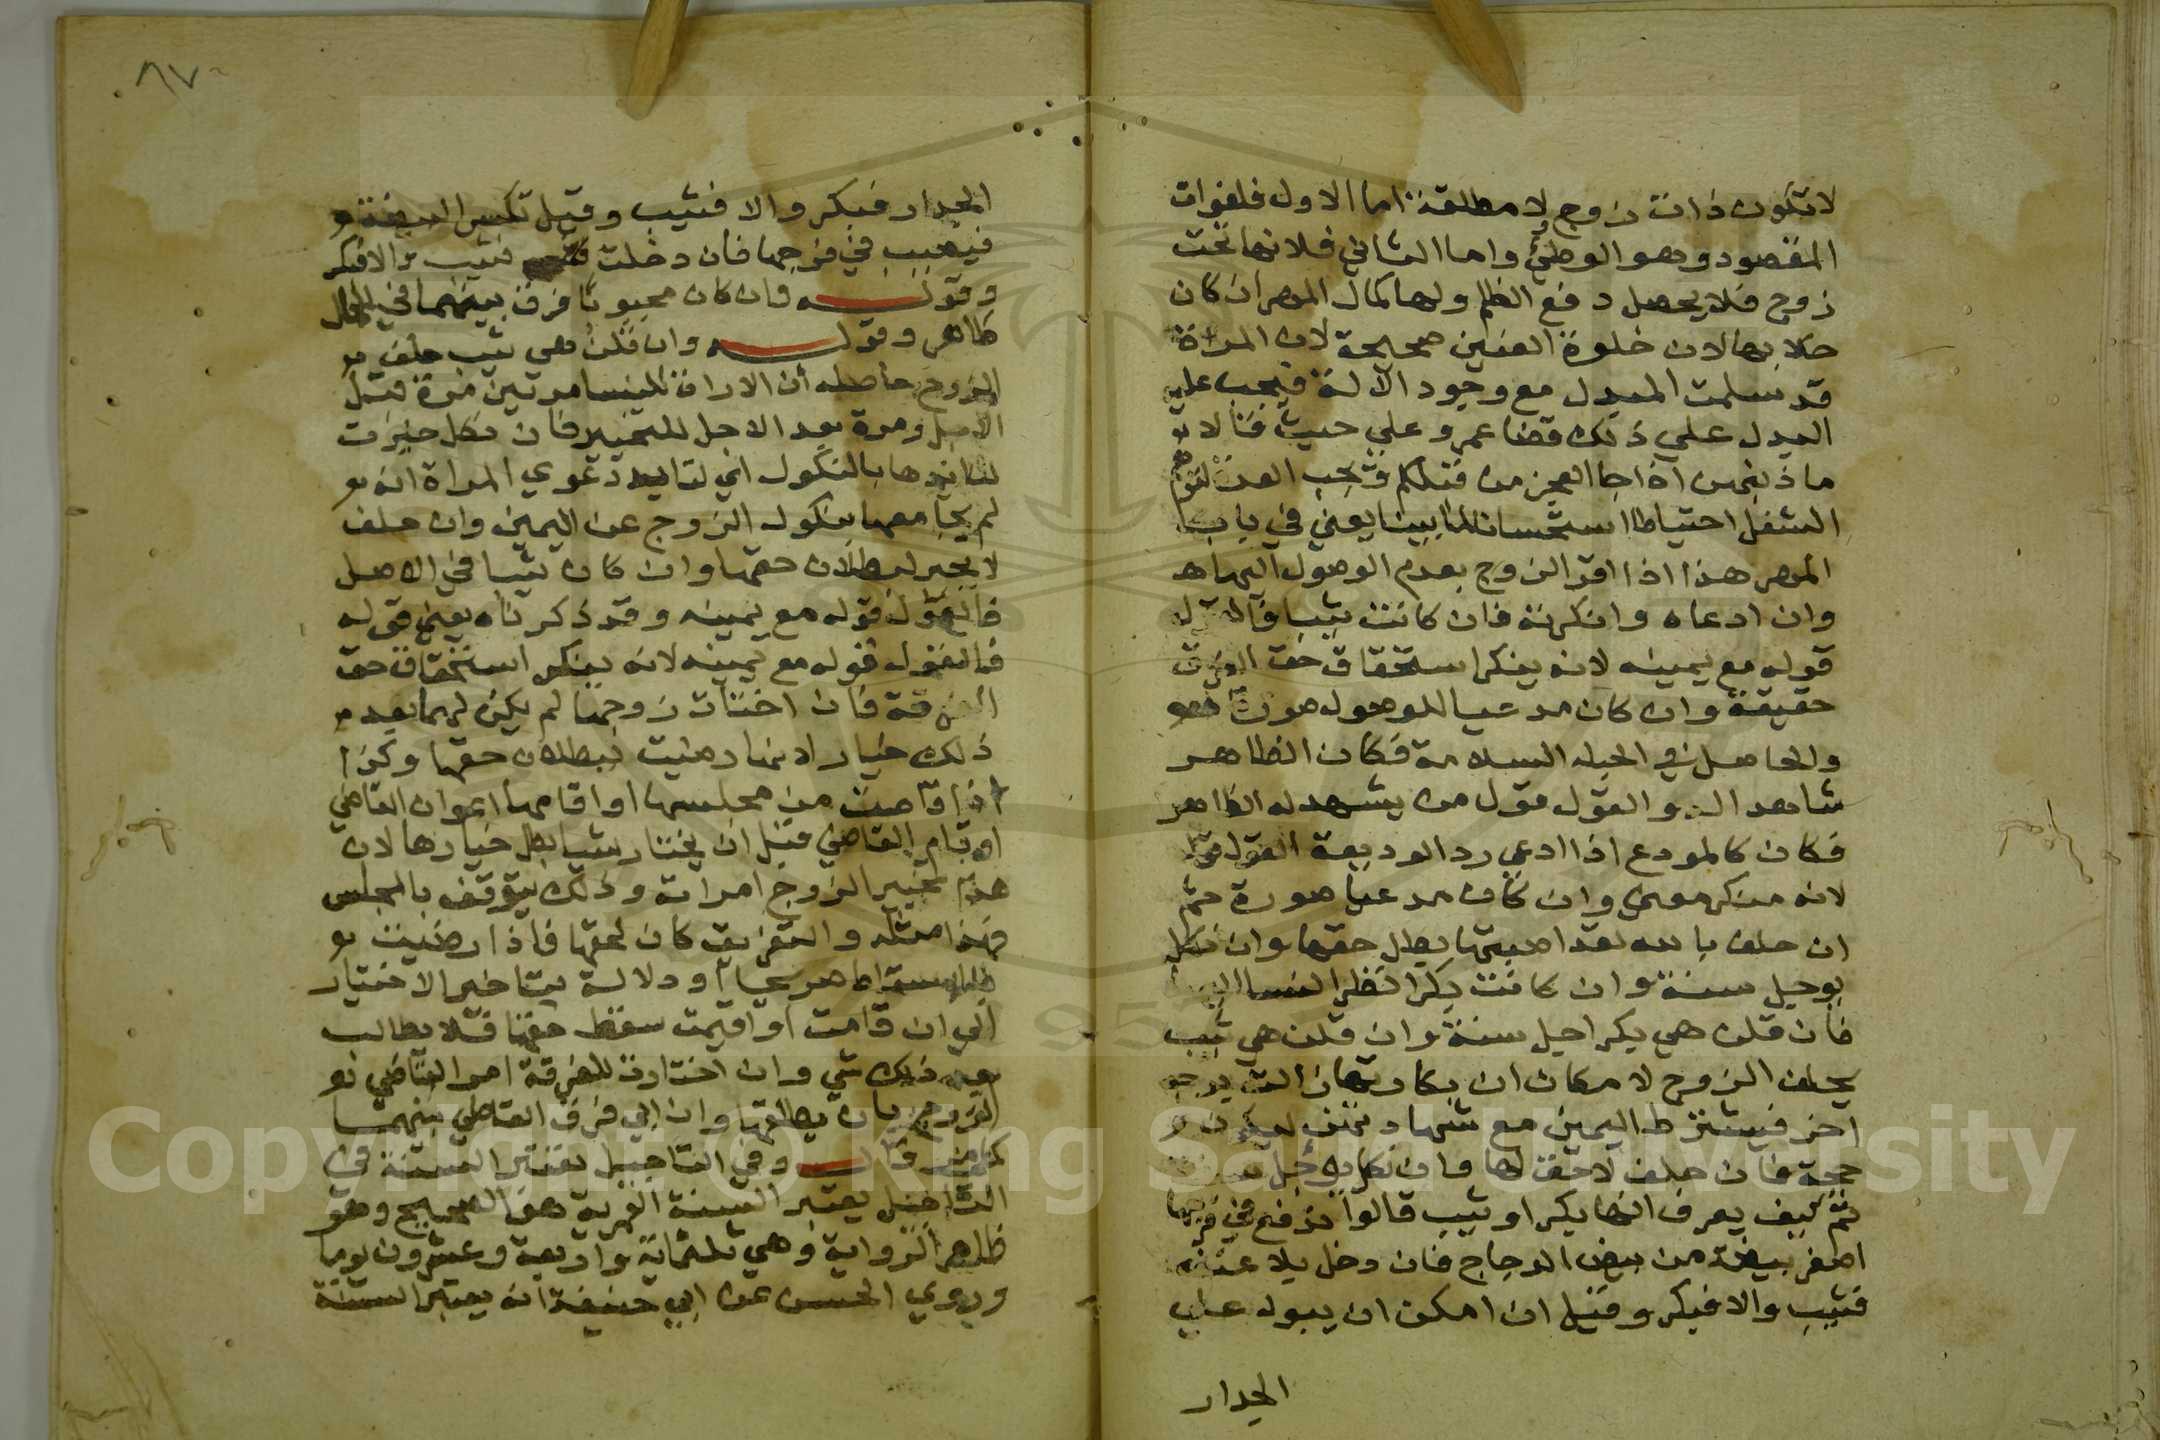 لا تكون ذات زوج ولا مطلقة اما الاول فلفوات
المقصود وهو الوطئ واما الثاني فلانها تحت
زوج فلا يحصل دفع الظلم ولها كمال المهر ان كان
خلا بها لان خلوة العنين صحيحة لان المراة
قد سلمت المبدل مع وجود الآلة فيجب عليه
البدل علي ذلك قضا عمر وعلي حيث قالا
ما ذنبهن اذا جا العجز من قبلكم وتجب العدة لتوهم
الشغل احتياطا استحسانا لما بينا يعني في باب
المهر هذا اذا اقر الزوج بعدم الوصول اليها
وان ادعاه وانكرته فان كانت ثيبا فالقول
قوله مع يمينه لانه ينكر استحقاق حق الفرقة
حقيقة وان كان مدعيا للوصول صورة
والحاصل في الجبلة السلامة فكان الظاهر
شاهدا له والقول قول من يشهد له الظاهر
فكان كالمودع اذا ادعي رد الوديعة القول قوله
لانه منكر معني وان كان مدعيا صورة ثم
ان حلف بالله لقد اصبتها بطل حقها وان نكل
يوجل سنة وان كانت بكرا نظر النسا اليها
فان قلن هي بكر اجل سنة وان قلن هي ثيب
يحلف الزوج لامكان ان بكارتها زالت بوجه
آخر فيشترط اليمين مع شهادتهن ليكون
حجة فان حلف لا حق لها وان نكل يوجل سنة
ثم كيف يعرف انها بكر او ثيب قالوا تدفع في فرجها
اصغر بيضة من بيض الدجاج فان دخل بلا عنف
فثيب والا فبكر وقيل ان امكن ان يبول علي
الجدار
٨٧
الجدار فبكر والا فثيب وقيل تكسر البيضة
فيصبب في فرجها فان دخلت فثيب والا فبكر
وقوله فان كان مجبوبا فرق بينهما في الحال
ظاهر وقوله وان قلن هي ثيب حلف
الزوج حاصله ان الاراة للنسا مرتين مرة قبل
الاجل ومرة بعد الاجل للتخيير فان نكل خيرت
لتايدها بالنكول اي لتايد دعوي المراة انه
لم يجامعها بنكول الزوج عن اليمين وان حلف
لا يخير لبطلان حقها وان كان ثيبا في الاصل
فالقول قوله مع يمينه وقد ذكرناه يعني قوله
فالقول قوله مع يمينه لانه ينكر استحقاق حق
الفرقة فان اختارت زوجها لم يكن لها بعد
ذلك خيار لانها رضيت ببطلان حقها وكذا
اذا قامت من مجلسها او اقامها اعوان القاضي
او قام القاضي قبل ان يختار شيا بطل خيارها لان
هذا تخيير الزوج امراته وذلك يتوقف بالمجلس
فهذا مثله والتفريق كان لحقها فاذا رضيت
او دلالة بتاخير الاختيار
الي ان قامت او اقيمت سقط حقها فلا يطالب
بعد ذلك شي وان اختارت الفرقة امر القاضي
الزوج بان يطلقها وان ابي فرق القاضي بينهما
قال وفي التاجيل تعتبر السنة في
التاجيل يعتبر السنة القمرية هو الصحيح وهو
ظاهر الرواية وهي ثلثماية واربعة وعشرون يوما
وروي الحسن عن ابي حنيفة انه يعتبر السنة
Copyright © King Saud University